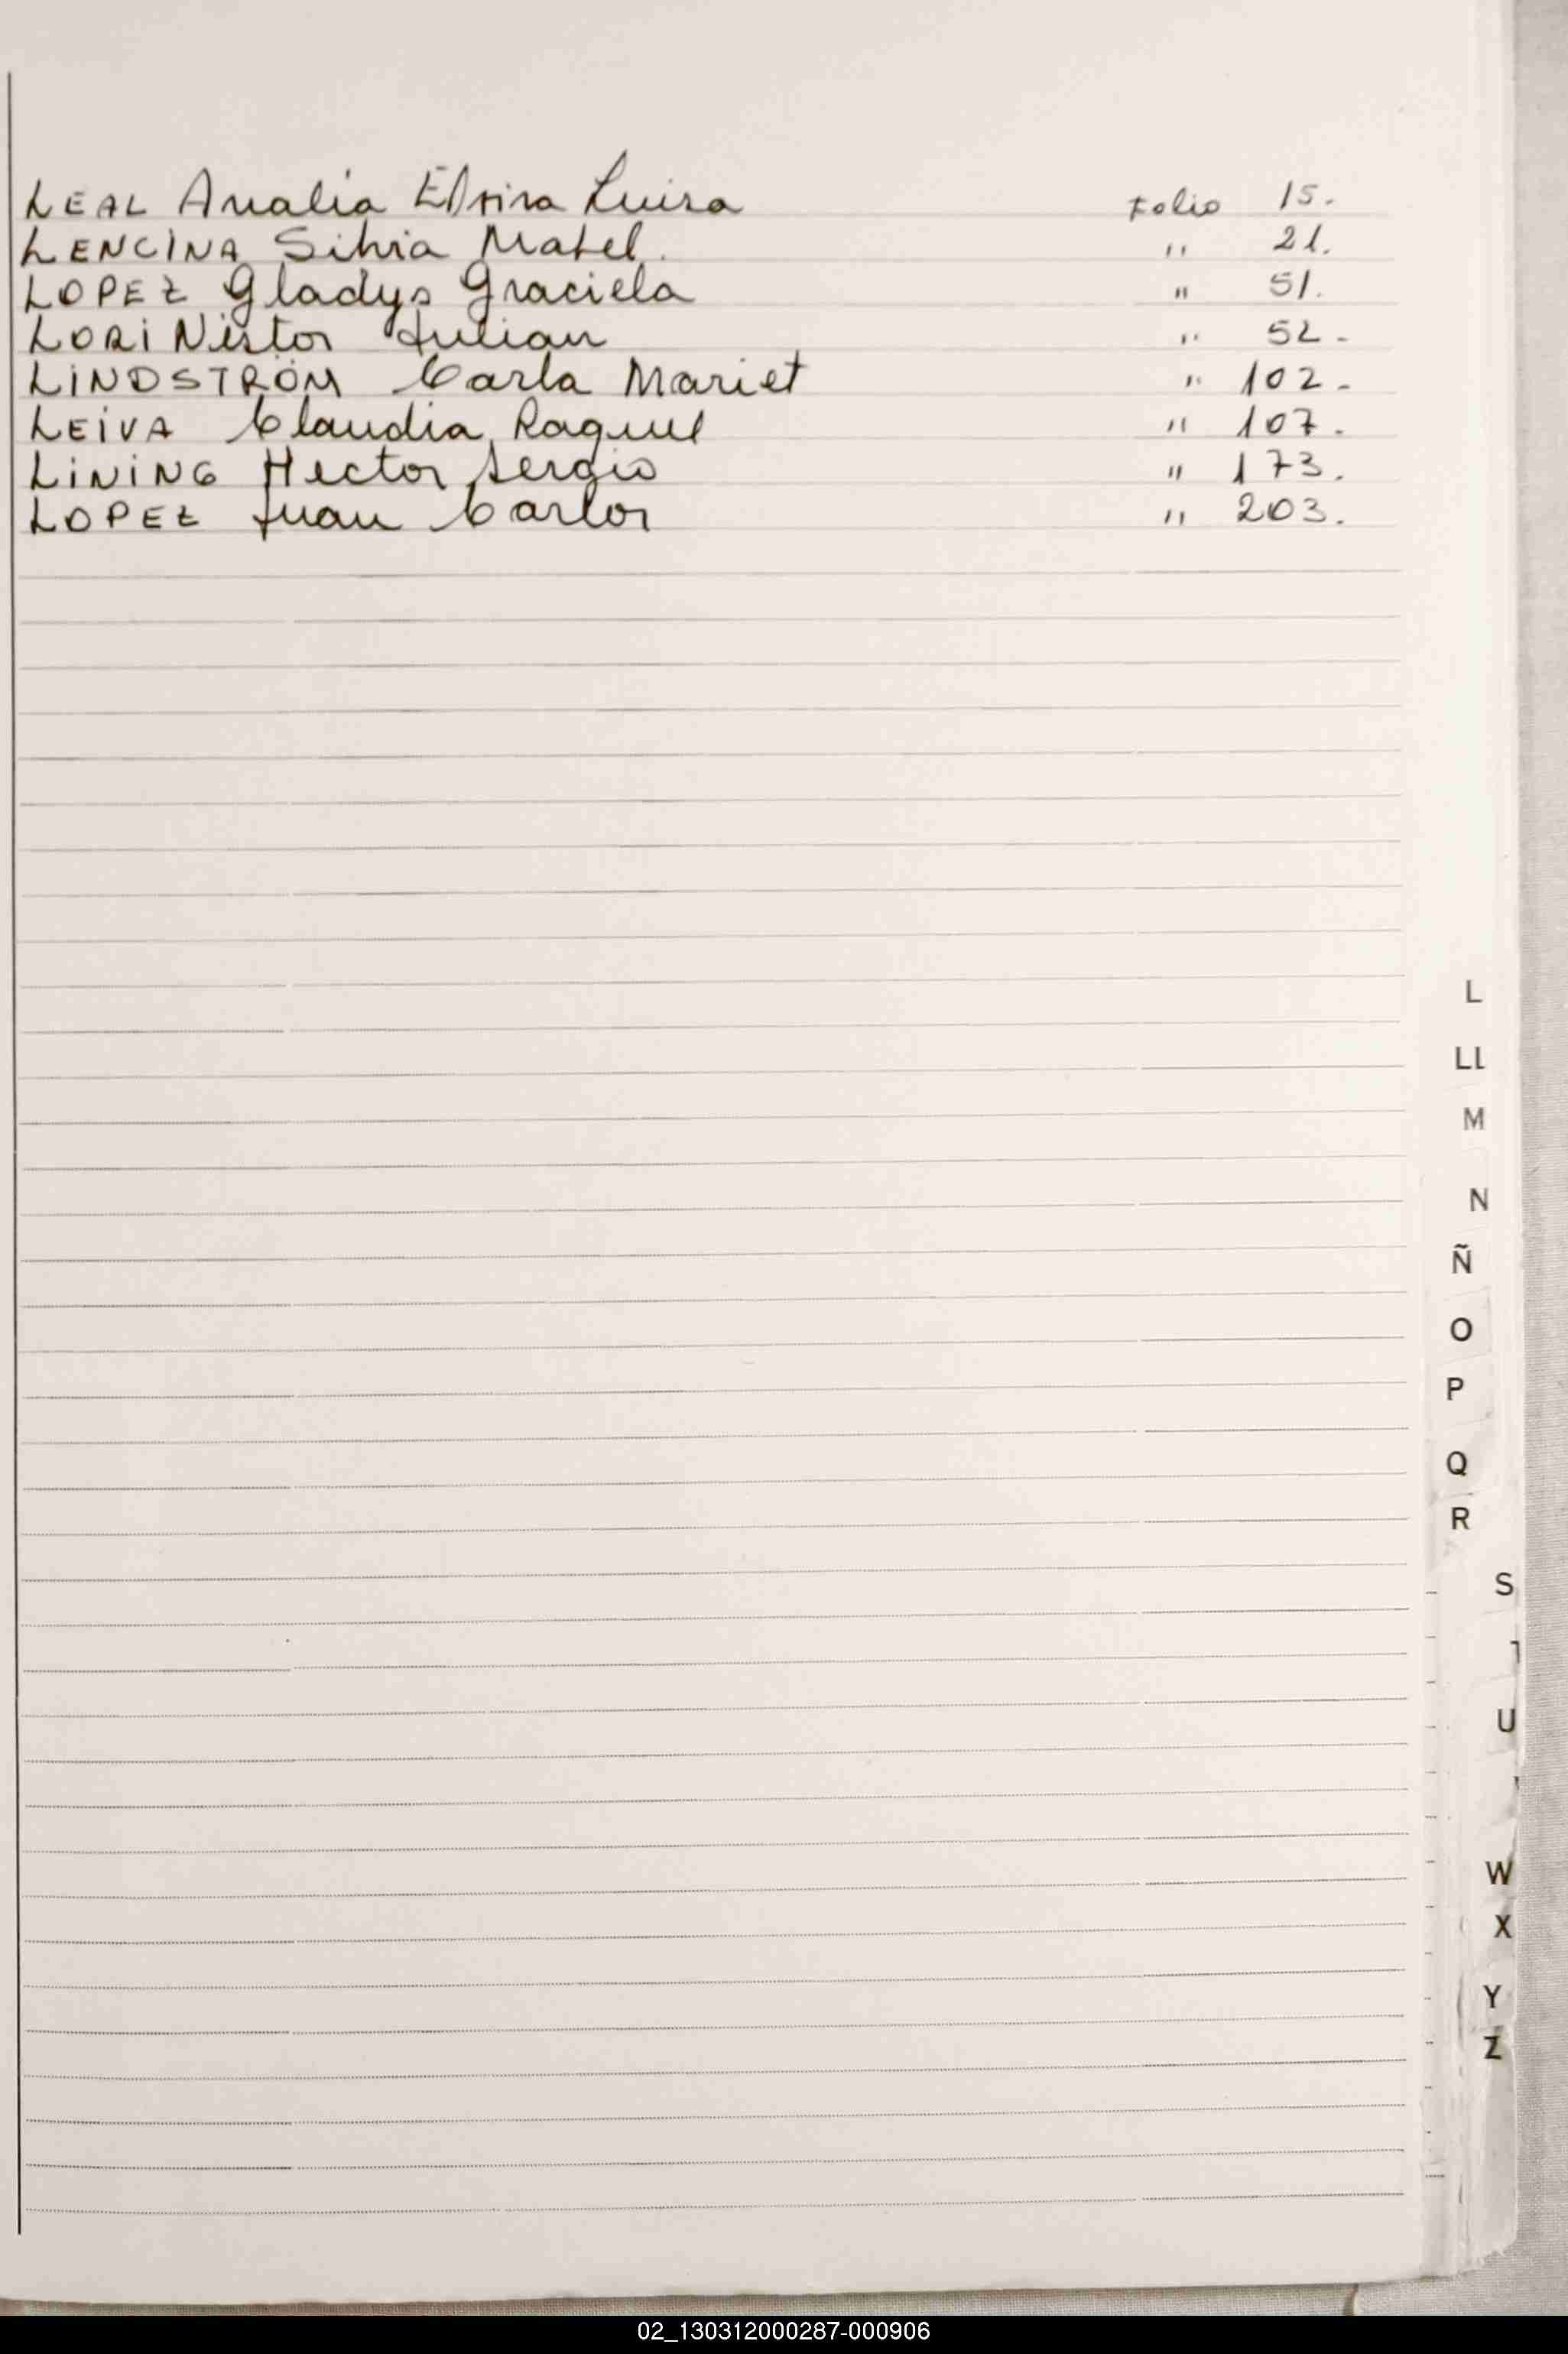 LEAL Analía Elvira Luisa Folio 15.
LENCINA Silvia Mabel. " 21.
LOPEZ Gladys Graciela " 51.
LORI Néstor Julian " 52-
LINDSTRÖM Carla Mariet " 102-
LEIVA Claudia Raquel " 107.
LINING Hector Sergio " 173.
LOPEZ Juan Carlos " 203.
L
LL
M
N
Ñ
O
P
Q
R
S
U
W
X
Y
Z
02_130312000287-000906